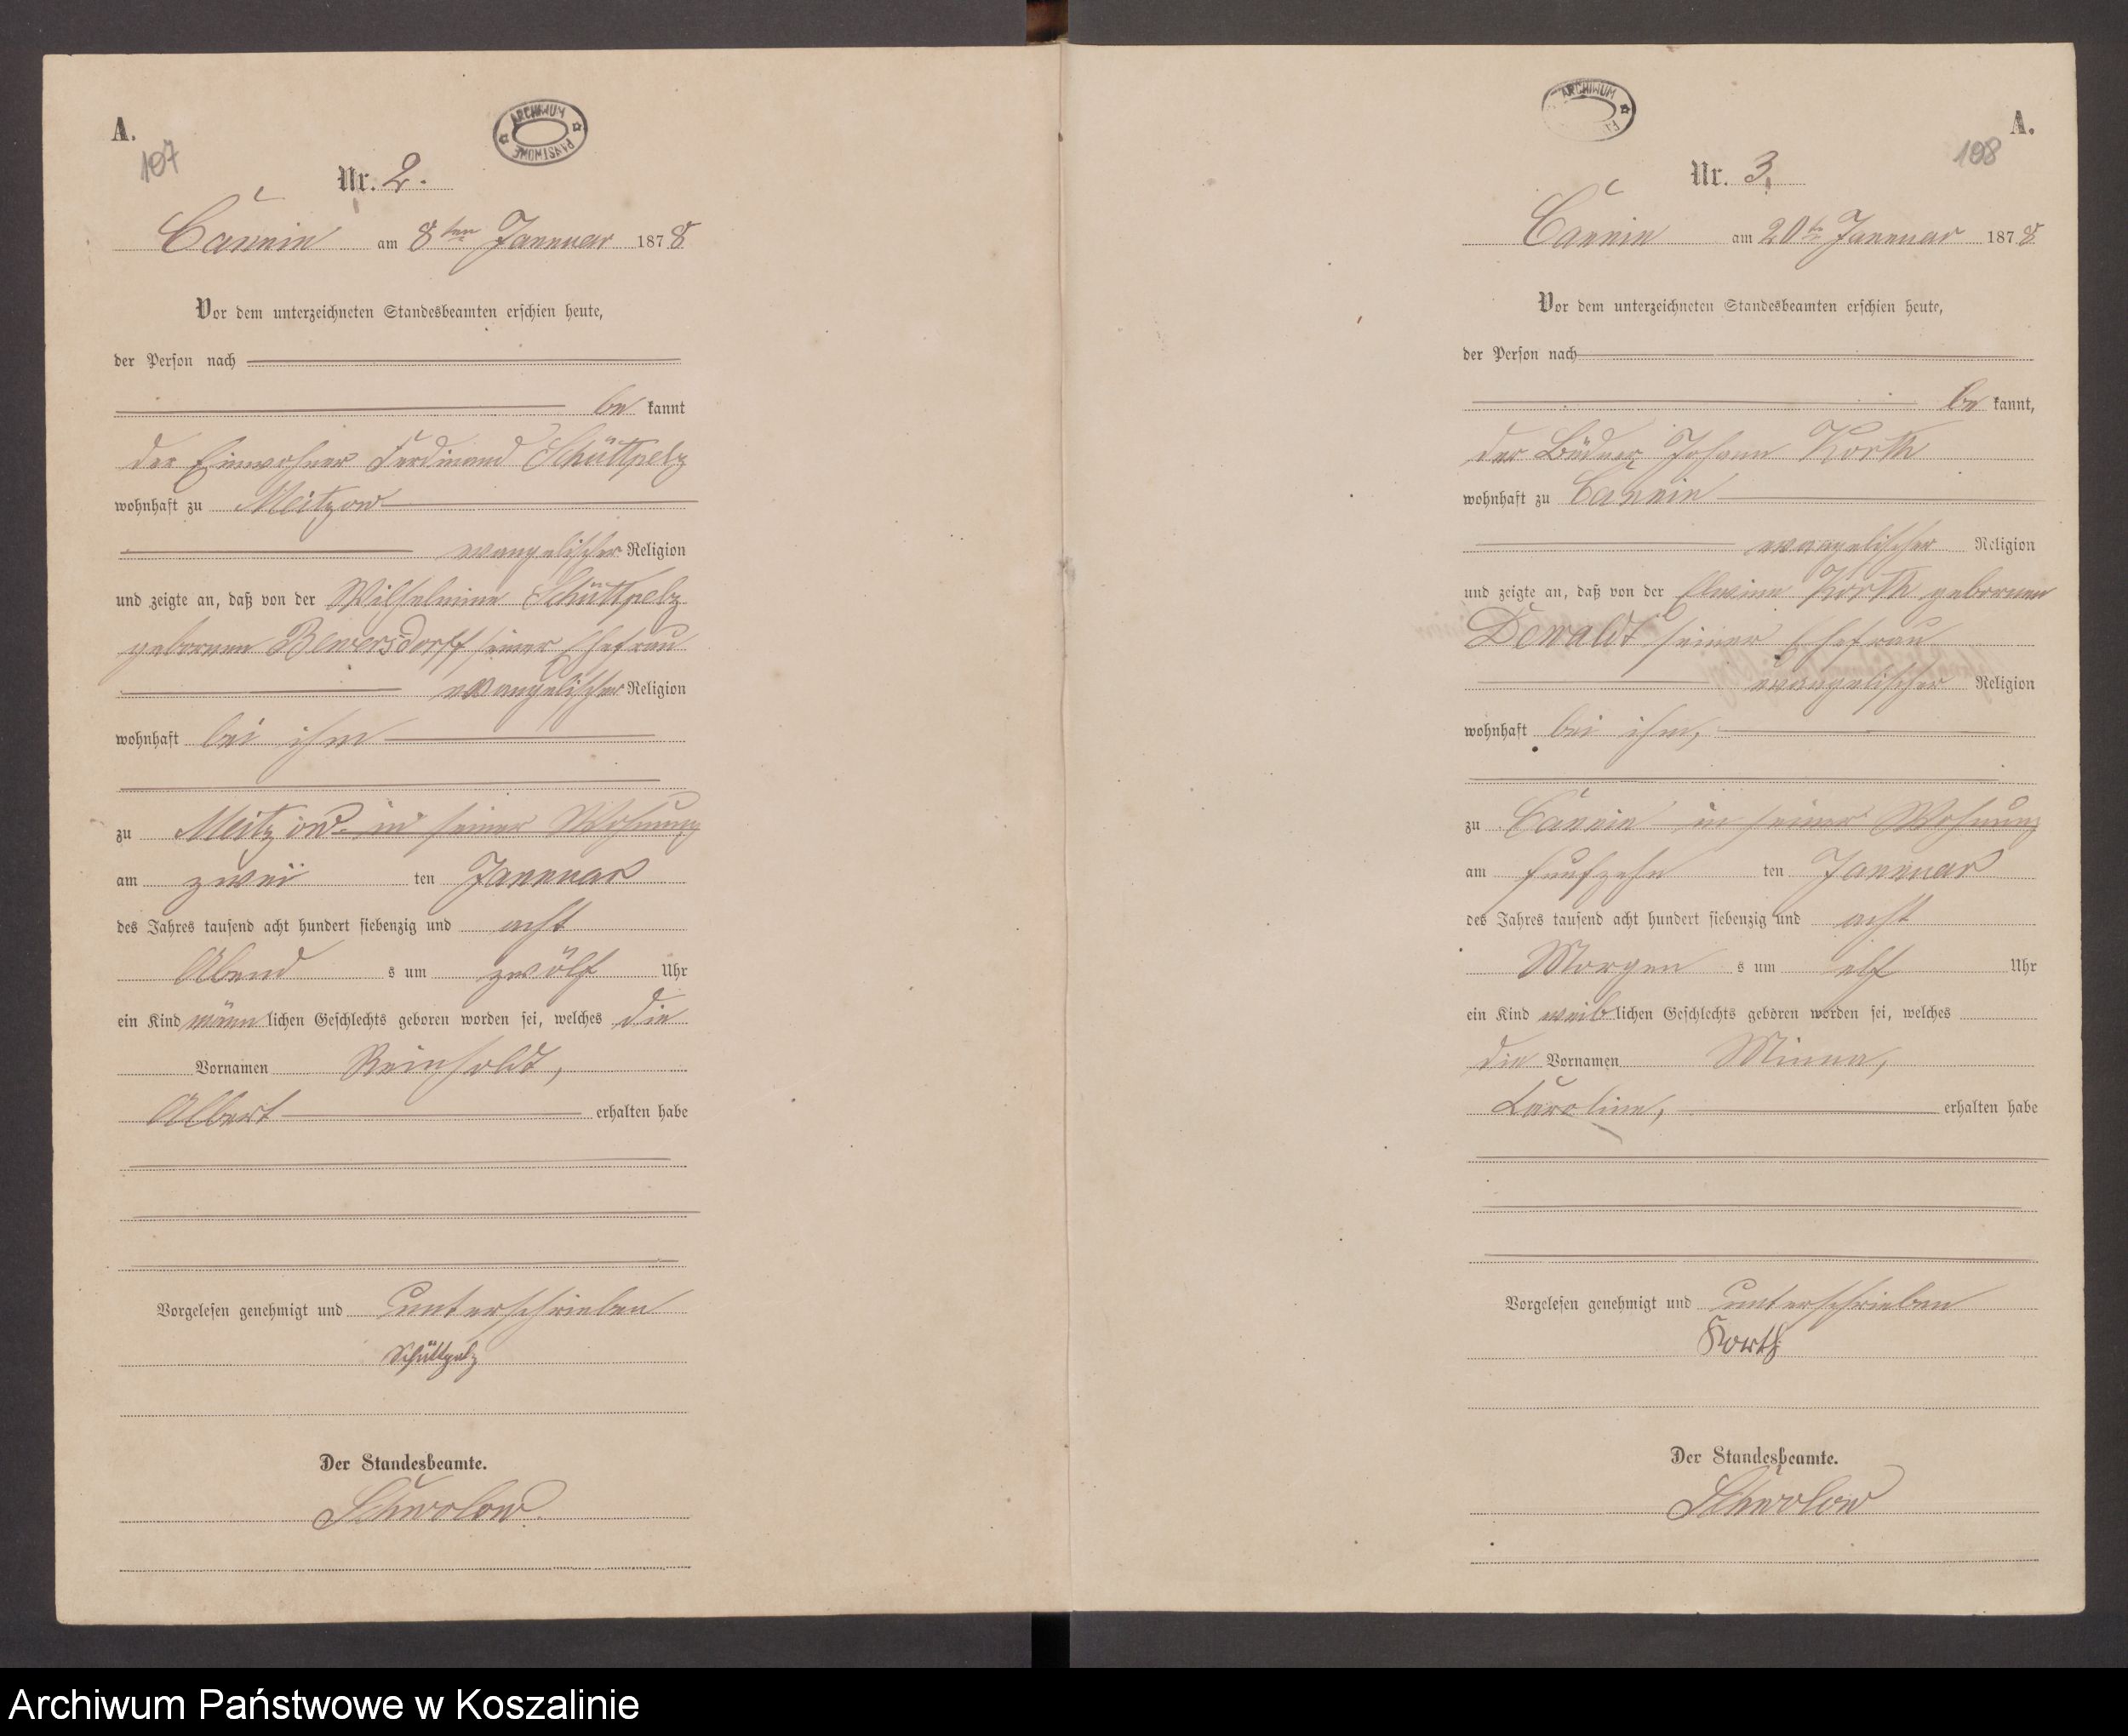 A.
107
ARCHIWUM PAŃSTWOWE
Nr. 2.
Cannin am 8ten Januar 1878
Vor dem unterzeichneten Standesbeamten erschien heute,
der Person nach
be kannt
der Einwohner Ferdinand Schüttpelz
wohnhaft zu Meitzow
evangelischer Religion
und zeigte an, daß von der Wilhelmine Schüttpelz
gebornen Bewersdorff seiner Ehefrau
evangelischer Religion
wohnhaft bei ihm
zu Meitzow in seiner Wohnung
am zwei ten Januar
des Jahres tausend acht hundert siebenzig und acht
Abend s um zwölf Uhr
ein Kind männ lichen Geschlechts geboren worden sei, welches die
Vornamen Reinholdt,
Albert erhalten habe
Vorgelesen genehmigt und unterschrieben
Schüttpelz
Der Standesbeamte.
Schwolow
ARCHIWUM
A.
108
Nr. 3.
Cannin am 20te Januar 1878
Vor dem unterzeichneten Standesbeamten erschien heute,
der Person nach
be kannt,
der Büdner Johann Korth
wohnhaft zu Cannin
evangelischer Religion
und zeigte an, daß von der Elwine Korth gebornen
Dewaldt seiner Ehefrau
evangelischer Religion
wohnhaft bei ihm,
zu Cannin in seiner Wohnung
am funfzehn ten Januar
des Jahres tausend acht hundert siebenzig und acht
Morgen s um elf Uhr
ein Kind weib lichen Geschlechts geboren worden sei, welches
die Vornamen Minna,
Karoline, erhalten habe
Vorgelesen genehmigt und unterschrieben
Korth
Der Standesbeamte.
Schwolow
Archiwum Państwowe w Koszalinie